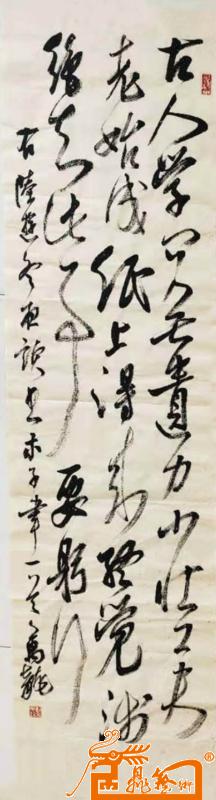 古人学问无遺力少壮工夫
老始成纸上得来终觉浅
绝知此事要躬行
右陸游冬夜读书示子聿一首